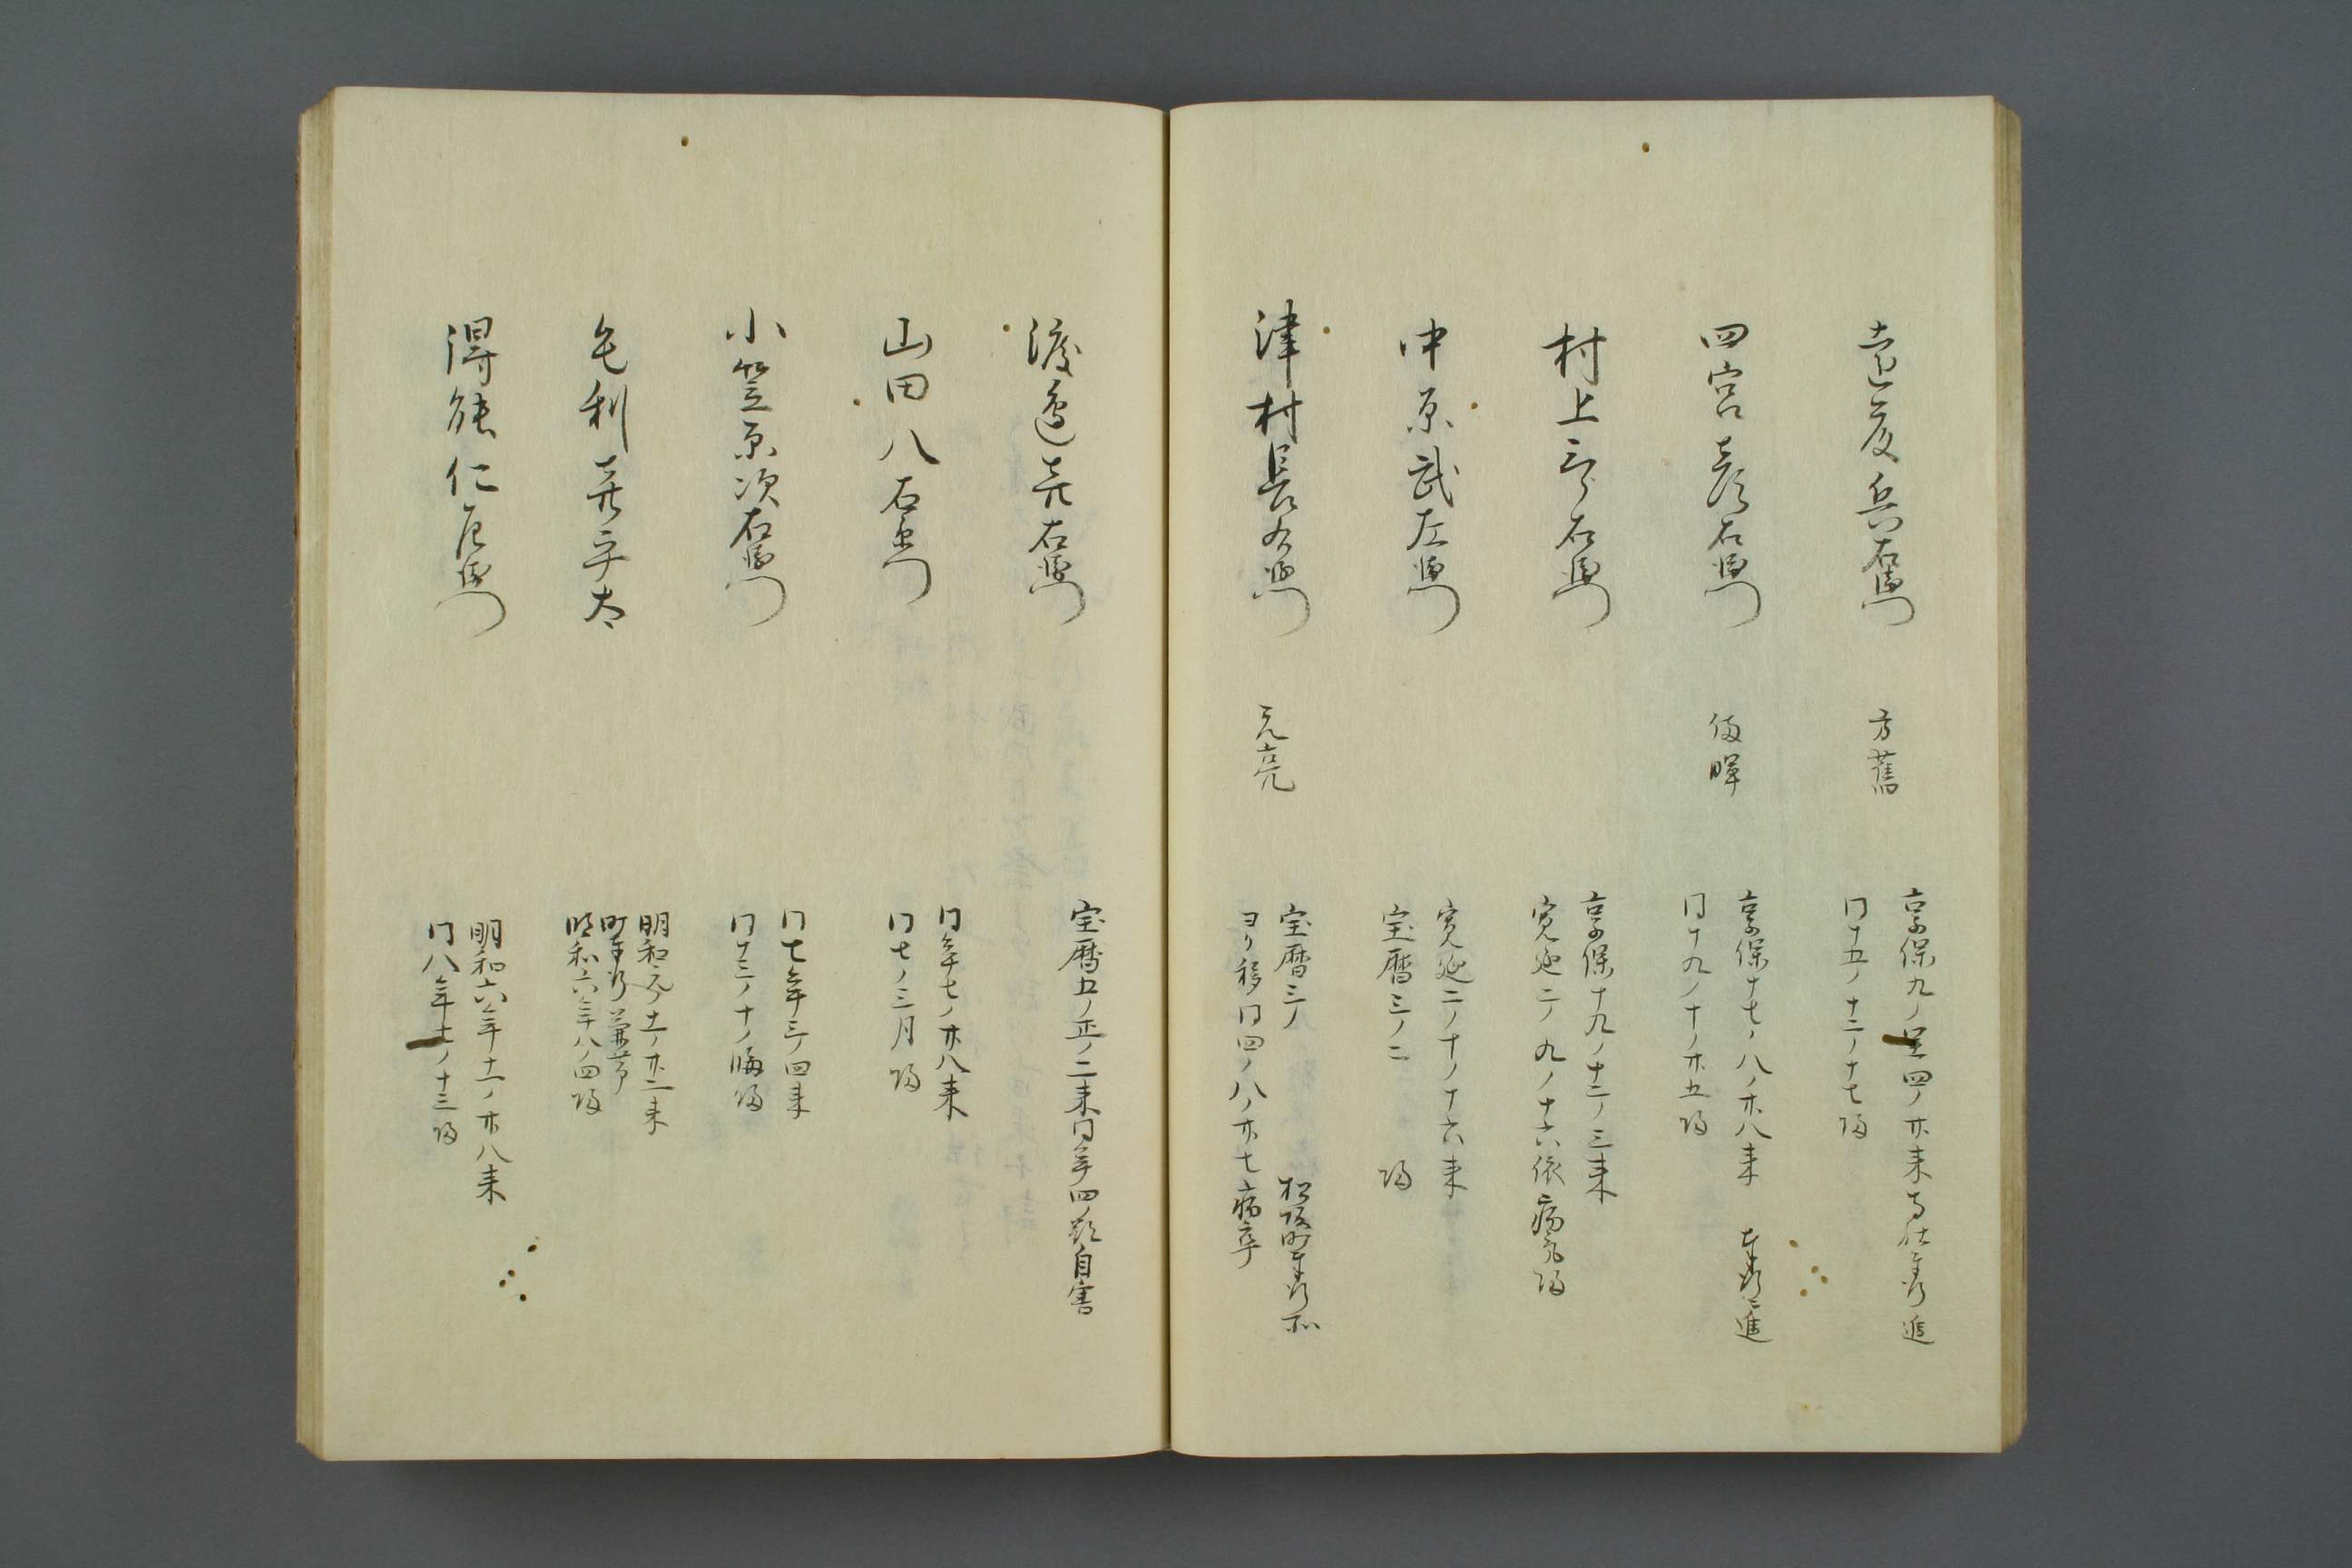 遠藤兵右衛門
方舊
享保九ノ閏四ノ廿来寺社奉行進
同十五ノ十二ノ十七帰
四宮彦右衛門
備暉
享保十七ノ八ノ廿八来 奉行ニ進
同十九ノ十ノ廿五帰
村上与右衛門
享保十九ノ十二ノ三来
寛延二ノ九ノ十六依病気帰
中原武左衛門
寛延二ノ十ノ十六来
宝暦三ノ二 帰
津村長右衛門
元亮
宝暦三ノ 松坂町奉行和
ヨリ移同四ノ八ノ廿七病卒
渡邉喜右衛門
宝暦五ノ正ノ二来同年四ノ朔自害
山田八右衛門
同年七ノ廿八来
同七ノ三月帰
小笠原次右衛門
同七年三ノ四来
同十三ノ十ノ晦帰
毛利喜平太
明和元ノ十一ノ廿二来
町奉行兼帯
明和六年八ノ四帰
得能仁左衛門
明和六年十一ノ廿八来
同八年七ノ十三帰